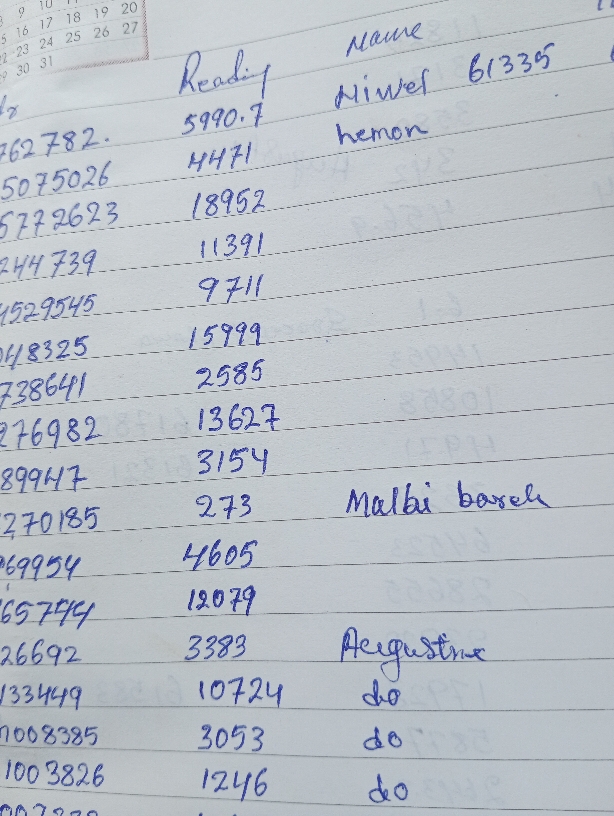 9 10
16 17 18 19 20
23 24 25 26 27
30 31
Reading Name
762782. 5990.7 Niwel 61335
5075026 4471 hemon
5772623 18952
244739 11391
4529545 9711
048325 15999
738641 2585
276982 13627
89947 3154
270185 273 Malbi bareh
69954 4605
65744 12079
26692 3383 Augustine
133449 10724 do
1008385 3053 do
1003826 1246 do